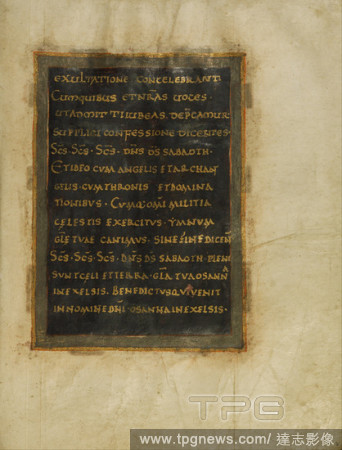 EXULTATIONE CONCELEBRANT
CUMQUIBUS ET NRAS UOCES
UTADMITTI IUBEAS DEPCAMUR
SUPPLICI CONFESSIONE DICENTES
SCS · SCS · SCS · DNS DS SABAOTH ·
ET IDEO CUM ANGELIS ET ARCHAN
GELIS · CUM THRONIS ET DOMINA
TIONIBUS · CUMQ· OMI MILITIA
CELESTIS EXERCITUS · YMNUM
GLE TUAE CANIMUS · SINE FINE DICEN
SCS · SCS · SCS · DNS DS SABAOTH · PLENI
SUNT CELI ET TERRA · GLA TUA OSANN
IN EXCELSIS. BENEDICTUS QUI UENIT
IN NOMINE DNI · OSANNA IN EXCELSIS ·
TPG
www.tpgnews.com/ 達志影像